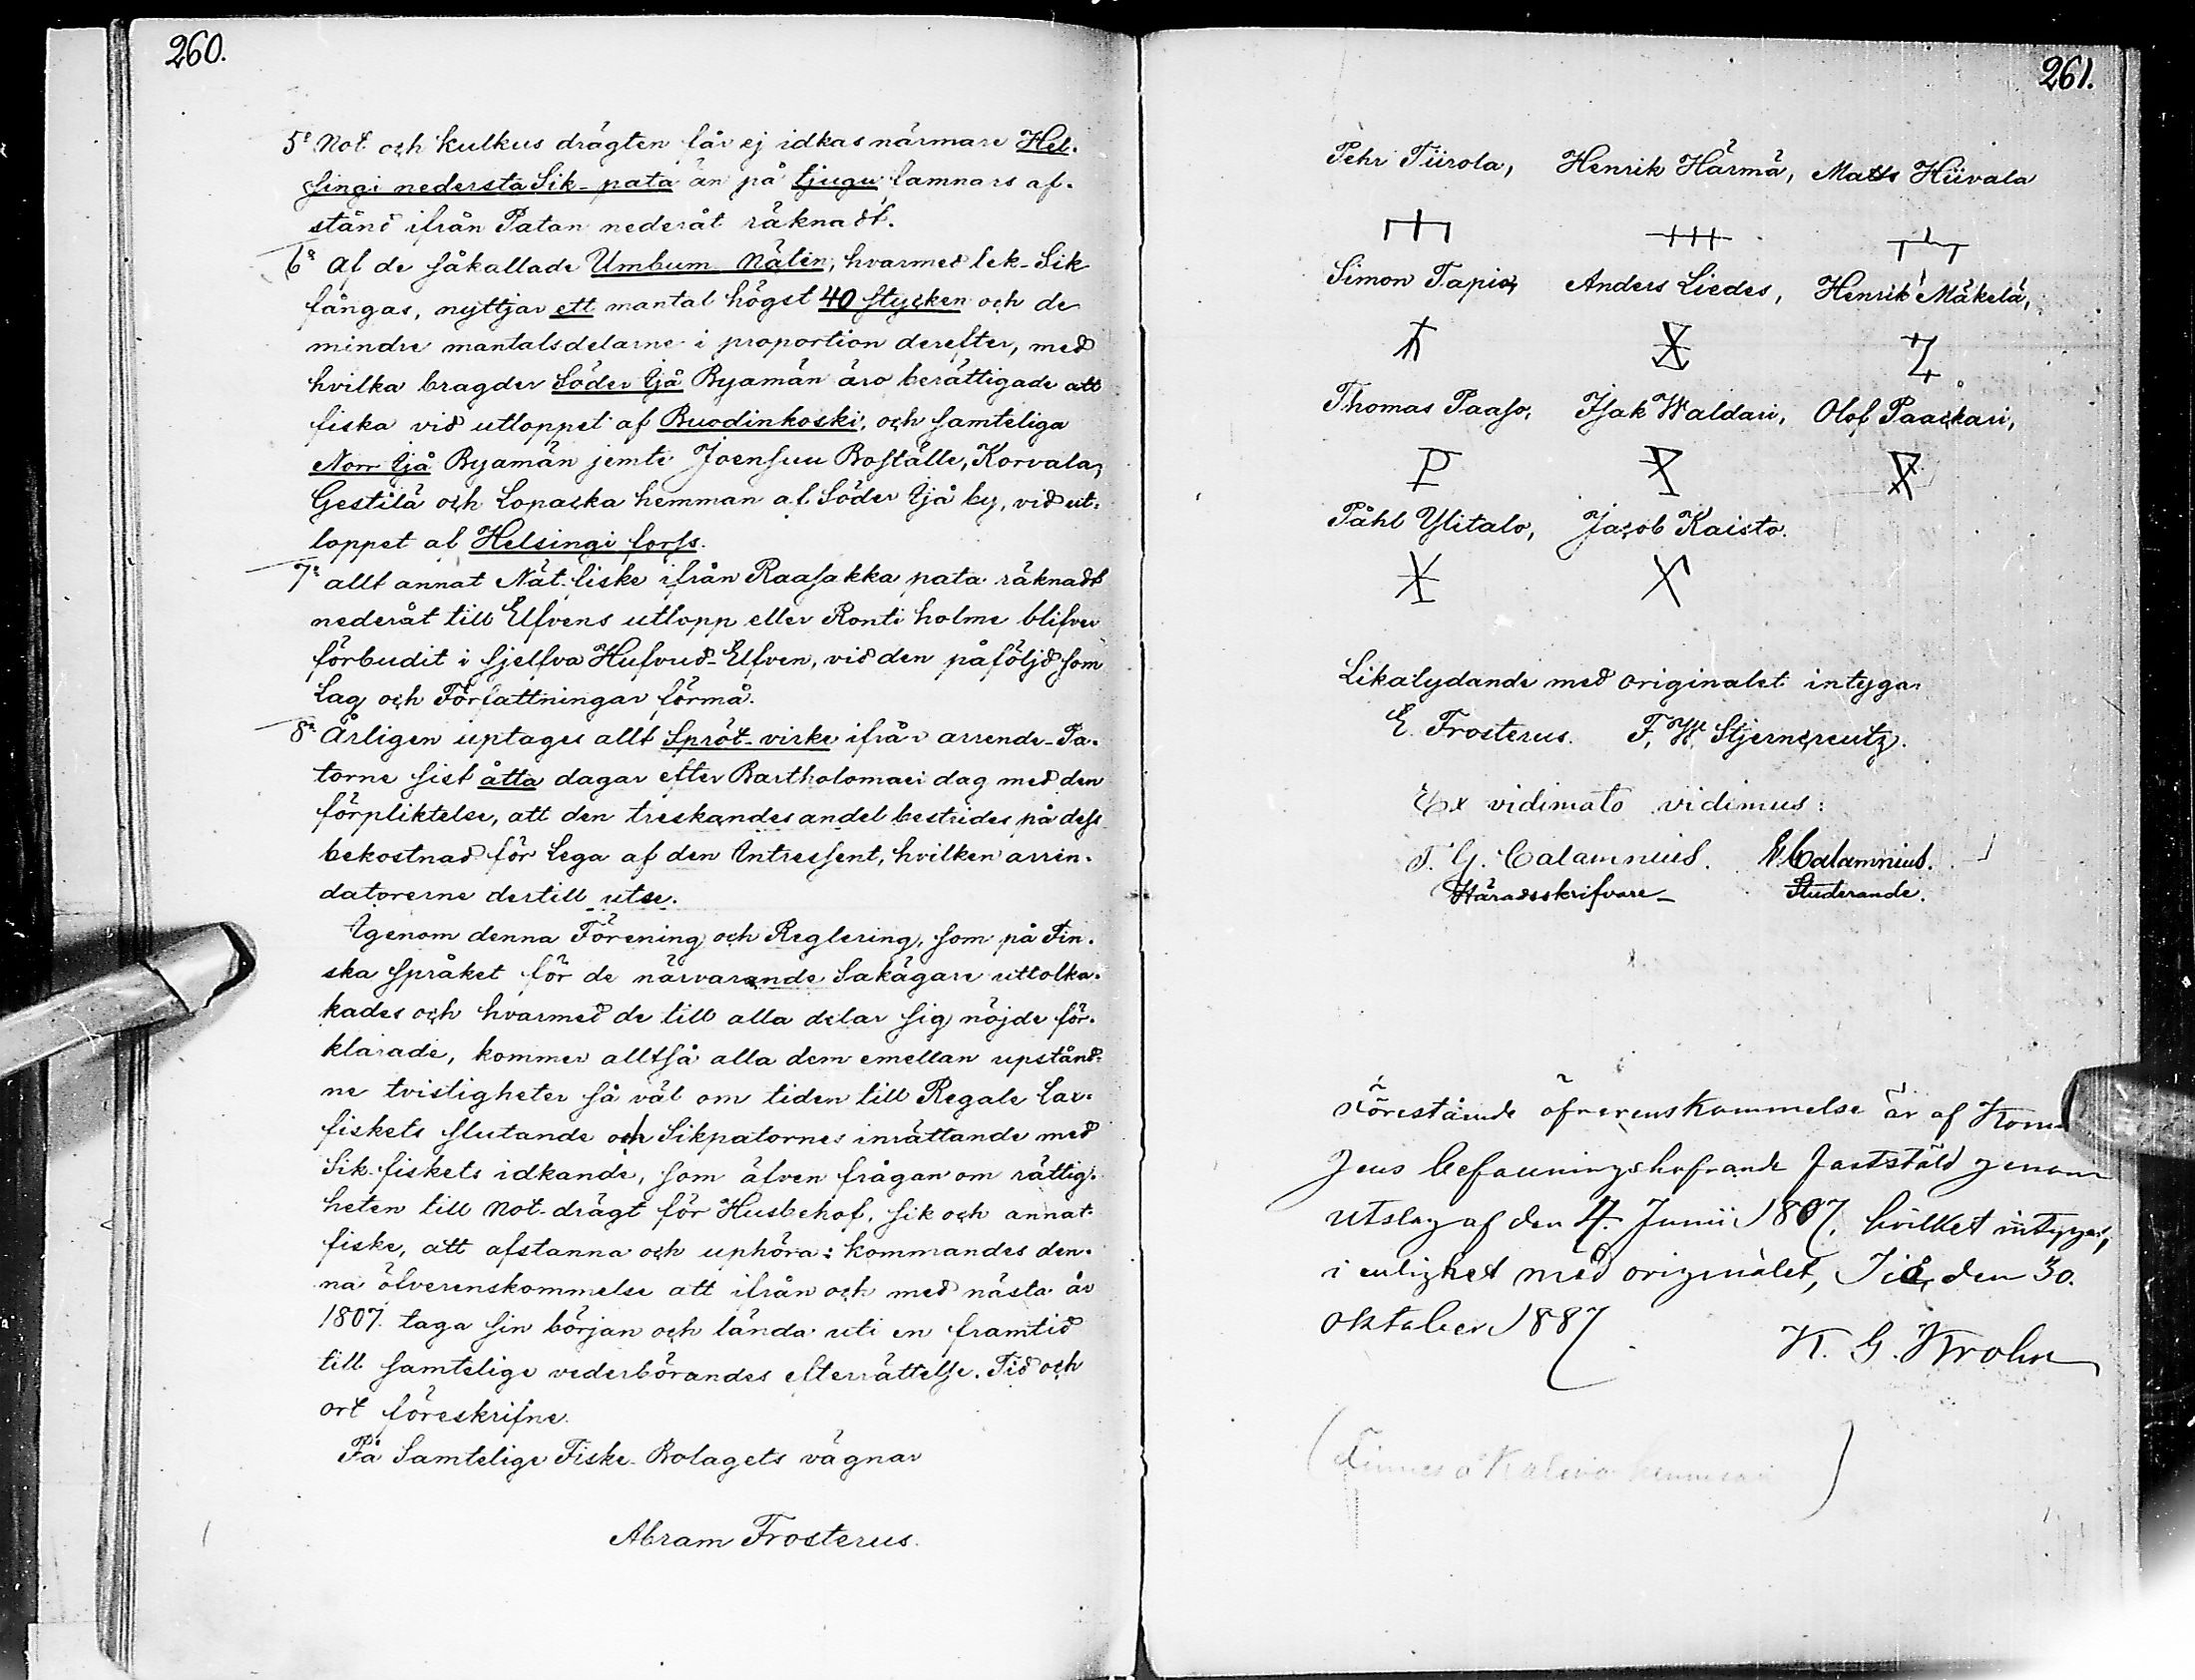 260.
5º Not och kulkus drägten får ej idkas närmare Hel-
singi nedersta Sik-pata än på tjugu famnars af-
stånd ifrån Patan nederåt räknadt.
6º Af de såkallade Umbum Nälin, hvarmed lek-Sik
fångas, nyttjar ett mantal högst 40 stycken och de
mindre mantalsdelarne i proportion derefter, med
hvilka bragder Söder Ijå Byamän äro berättigade att
fiska vid utloppet af Buodinkoski, och samteliga
Norr Ijå Byamän jemte Joensuu Boställe, Korvala,
Gestilä och Lopacka hemman af Söder Ijå by, vid ut-
loppet af Helsingi forss.
7º allt annat Nät-fiske ifrån Raasakka pata räknadt
nederåt till Elfvens utlopp eller Ronti holme blifver
förbudit i sjelfva Hufvud-Elfven, vid den påföljd som
Lag och Författningar förmå.
8º Årligen uptages allt Spröt-virke ifrån arrende-Pa-
torne sist åtta dagar efter Bartholomaei dag med den
förpliktelse, att den treskandes andel bestrides på dess
bekostnad för Lega af den Intressent, hvilken arren-
datorerne dertill utse.
Igenom denna Förening och Reglering, som på Fin-
ska språket för de närvarande Sakägare uttolka-
kades och hvarmed de till alla delar sig nöjde för-
klarade, kommer alltså alla dem emellan upstånd-
ne tvistigheter så väl om tiden till Regale Lax-
fiskets slutande och Sikpatornes inrättande med
Sik-fiskets idkande, som äfven frågan om rättig-
heten till Not-drägt för Husbehof, sik och annat
fiske, att afstanna och uphöra: kommandes den-
na öfverenskommelse att ifrån och med nästa år
1807. taga sin början och lända uti en framtid
till samtelige vederbörandes efterrättelse. Tid och
ort föreskrifne.
På Samtelige Fiske-Bolagets vägnar
Abram Frosterus.
261.
Pehr Tiirola, Henrik Härmä, Matts Hiivala
Simon Tapio, Anders Liedes, Henrik Mäkelä,
Thomas Paaso, Isak Waldari, Olof Paackari,
Påhl Ylitalo, Jacob Kaisto.
Likalydande med originalet intygar
E. Frosterus. F. W. Stjerncreutz.
Ex vidimato vidimus:
F. G. Calamnius. Calamnius.
Häradsskrifvare Studerande.
Förestående öfverenskommelse är af Konu
gens befallningshafvande faststäld genom
utslag af den 4. Junii 1807, hvilket intygas,
i enlighet med originalet, Ijå, den 30.
oktober 1887.
K. G. Krohn
(Finnes å hemman)